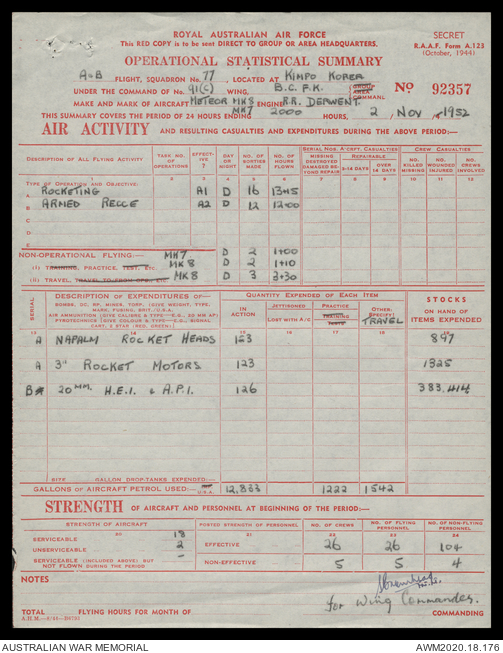 ROYAL AUSTRALIAN AIR FORCE
This RED COPY is to be sent DIRECT TO GROUP OR AREA HEADQUARTERS.
SECRET
R.A.A.F. Form A.123
(October, 1944)
OPERATIONAL STATISTICAL SUMMARY
A+B FLIGHT, SQUADRON No. 77, LOCATED AT KIMPO KOREA
UNDER THE COMMAND OF No. 91(C) WING, B.C.F.K. GROUP AREA COMMAND. No 92357
MAKE AND MARK OF AIRCRAFT METEOR MK8 MK7 ENGINE R.R. DERWENT.
THIS SUMMARY COVERS THE PERIOD OF 24 HOURS ENDING 2000 HOURS, 2 NOV 1952
AIR ACTIVITY AND RESULTING CASUALTIES AND EXPENDITURES DURING THE ABOVE PERIOD:—
DESCRIPTION OF ALL FLYING ACTIVITY TAKE NO. OF OPERATIONS EFFECTIVE ? DAY OR NIGHT NO. OF SORTIES MADE NO. OF HOURS FLOWN SERIAL NOS. A'CRFT. CASUALTIES CREW CASUALTIES
MISSING DESTROYED DAMAGED BEYOND REPAIR REPAIRABLE 3-14 DAYS OVER 14 DAYS NO. KILLED MISSING NO. WOUNDED INJURED NO. CREWS INVOLVED
1 2 3 4 5 6 7 8 9 10 11 12
TYPE OF OPERATION AND OBJECTIVE:
A ROCKETING A1 D 16 13+45
B ARMED RECCE A2 D 12 12+00
C
D
E
NON-OPERATIONAL FLYING:— MK7 D 2 1+00
(i) TRAINING, PRACTICE, TEST, ETC. MK8 D 2 1+10
(ii) TRAVEL, MK8 D 3 3+30
SERIAL DESCRIPTION OF EXPENDITURES OF— QUANTITY EXPENDED OF EACH ITEM STOCKS
BOMBS, DC, RP, MINES, TORP. (GIVE WEIGHT, TYPE, MARK, FUSING, BRIT./U.S.A.
AIR AMMUNITION (GIVE CALIBRE & TYPE—E.G., 20 MM AP)
PYROTECHNICS (GIVE COLOUR & TYPE—E.G., SIGNAL CART, 2 STAR (RED, GREEN).
IN ACTION JETTISONED LOST WITH A/C PRACTICE TRAINING TESTS OTHER: SPECIFY: TRAVEL ON HAND OF ITEMS EXPENDED
13 14 15 16 17 18 19
A NAPALM ROCKET HEADS 123 897
A 3" ROCKET MOTORS 123 1325
B 20 MM. H.E.I. & A.P.I. 126 383,414
SIZE GALLON DROP-TANKS EXPENDED:—
GALLONS OF AIRCRAFT PETROL USED:— U.S.A. 12,833 1222 1542
STRENGTH OF AIRCRAFT AND PERSONNEL AT BEGINNING OF THE PERIOD:—
STRENGTH OF AIRCRAFT POSTED STRENGTH OF PERSONNEL NO. OF CREWS NO. OF FLYING PERSONNEL NO. OF NON-FLYING PERSONNEL
20 21 22 23 24
SERVICEABLE 18
UNSERVICEABLE 2
SERVICEABLE (INCLUDED ABOVE) BUT NOT FLOWN DURING THE PERIOD –
EFFECTIVE 26 26 104
NON-EFFECTIVE 5 5 4
NOTES
for Wing Commander.
TOTAL FLYING HOURS FOR MONTH OF COMMANDING
AUSTRALIAN WAR MEMORIAL
AWM2020.18.176